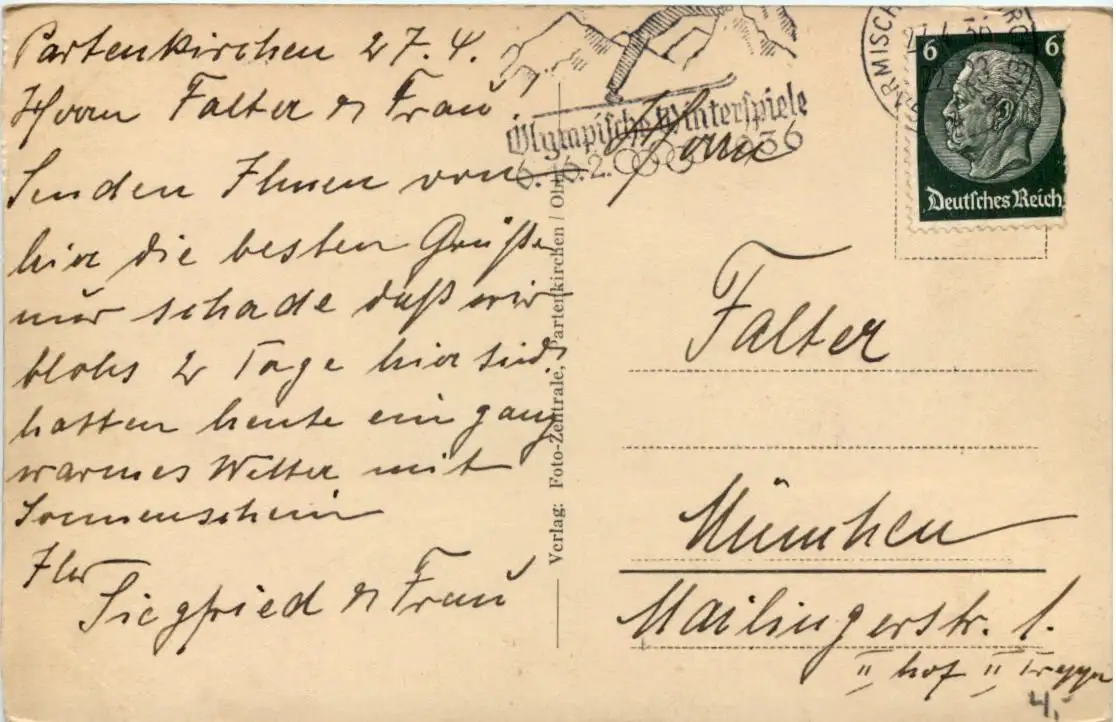 Partenkirchen 27.4.
Herrn Falter & Frau
Senden Ihnen von
hier die besten Grüße
nur schade daß wir
blohs 2 Tage hier sind
hatten heute ein ganz
warmes Wetter mit
Sonnenschein
Ihr
Siegfried & Frau
Verlag: Foto-Zentrale, Partenkirchen
Olympische Winterspiele
6.-16.2. 1936
GARMISCH
27.4.36
6 6
Deutsches Reich
Herrn
Falter
München
Mailingerstr. 1.
II hof II
4.-